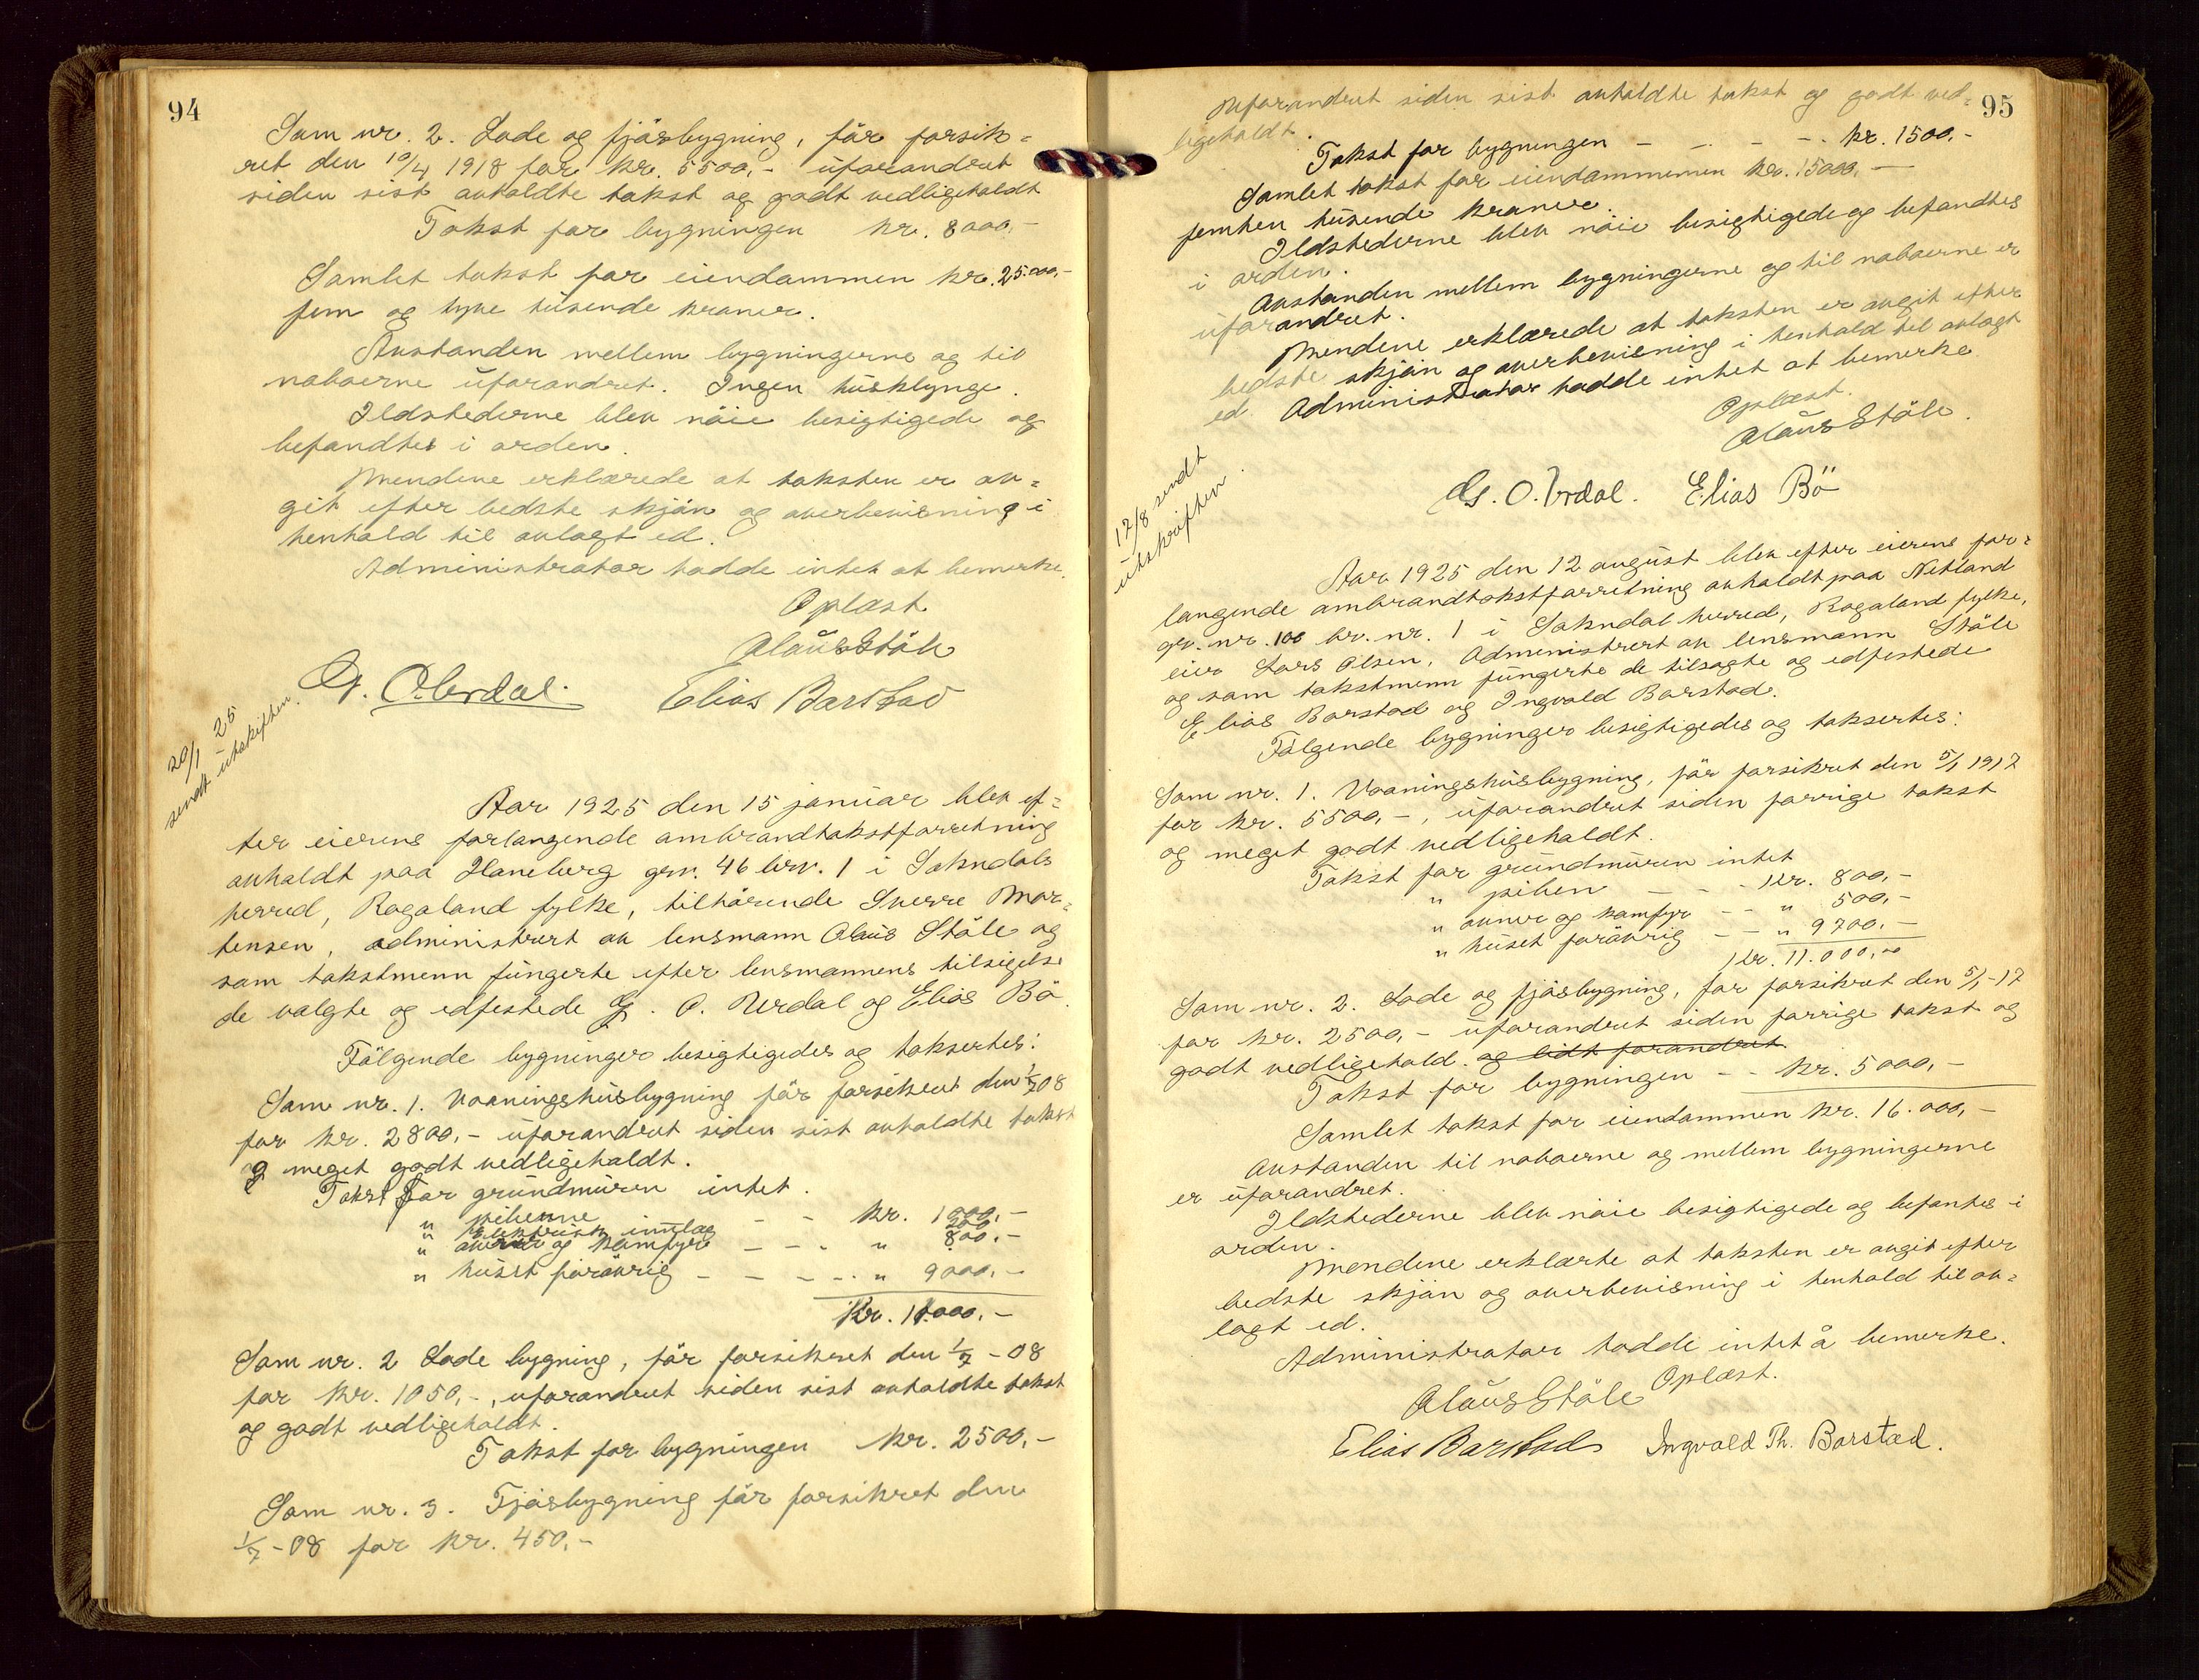 94
Som nr. 2. Lode og fjösbygning, för forsik=
ret den 10/4 1918 for kr. 5500,- uforandret
siden sist avholdte takst og godt vedligeholdt
Takst for bygningen kr. 8000,-
Samlet takst for eiendommen kr. 25.000,-
fem og tyve tusende kroner.
Avstanden mellem bygningerne og til
naboerne uforandret. Ingen husklynge.
Ildstederne blev nöie besigtigede og
befandtes i orden.
Mendene erklærede at taksten er av=
git efter bedste skjön og overbevisning i
henhold til avlagt ed.
Administrator hadde intet at bemerke.
Oplæst
Olaus Stöle
G. O. Urdal. Elias Barstad
20/1 25
sendt utskriften.
Aar 1925 den 15 januar blev ef=
ter eierens forlangende ombrandtakstforretning
avholdt paa Haneberg grv. 46 brv. 1 i Sokndals
herred, Rogaland fylke, tilhörende Sverre Mor=
tensen, administrert av lensmann Olaus Stöle og
som takstmenn fungerte efter lensmannens tilsigelse
de valgte og edfestede G. O. Urdal og Elias Bö.
Fölgende bygninger besigtigedes og taksertes:
Som nr. 1. Vaaningshusbygning för forsikret den 1/7 08
for kr. 2800,- uforandret siden sist avholdte takst
og meget godt vedligeholdt.
Takst for grundmuren intet.
" pibenne - - kr. 1000,-
" Elektrisk innlæg 200
" ovner og komfyr - - - " 800.-
" huset forövrig - - - - - " 9000,-
Kr. 11000,-
Som nr. 2 Lode bygning, för forsikret den 1/7 - 08
for kr. 1050,-, uforandret siden sist avholdte takst
og godt vedligeholdt.
Takst for bygningen kr. 2500,-
Som nr. 3. Fjösbygning för forsikret den
1/7 - 08 for kr. 450,-
95
Uforandret siden sist avholdte takst og godt ved=
ligeholdt.
Takst for bygningen - - - - kr. 1500,-
Samlet takst for eiendommenen kr. 15000,-
femten tusende kroner.
Ildstederne blev nöie besigtigede og befandtes
i orden.
Avstanden mellem bygningerne og til naboerne er
uforandret.
Mendene erklærede at taksten er avgit efter
bedste skjön og overbevisning i henhold til avlagt
ed. Administrator hadde intet at bemerke
Oplæst.
Olaus Stöle.
G. O. Urdal. Elias Bö
12/8 sendt
utskriften.
Aar 1925 den 12 august blev efter eierens for=
langende ombrandtakstforretning avholdt paa Netland
gr. nr. 100 br. nr. 1 i Sokndal herred, Rogaland fylke,
eier Lars Olsen, Administrert av lensmann Stöle
og som takstmenn fungerte de tilsagte og edfestede
Elias Barstad og Ingvald Barstad.
Fölgende bygninger besigtigedes og taksertes:
Som nr. 1. Vaaningshusbygning, för forsikret den 5/1 1917
for kr. 5500,-, uforandret siden forrige takst
og meget godt vedligeholdt.
Takst for grundmuren intet
" piben - - - kr. 800,-
" ovner og komfyr - - " 500,-
" huset forövrig - - " 9700,-
kr. 11.000,00
Som nr. 2. Lode og fjösbygning, för forsikret den 5/1 - 17
for kr. 2500,- uforandret siden forrige takst og
godt vedligehold. og lidt forandret.
Takst for bygningen - - kr. 5000,-
Samlet takst for eiendommen kr. 16.000,-
Avstanden til naboerne og mellem bygningerne
er uforandret.
Ildstederne blev nöie besigtigede og befantes i
orden.
Mendene erklærte at taksten er avgit efter
bedste skjön og overbevisning i henhold til av=
lagt ed.
Administrator hadde intet å bemerke.
Oplæst.
Olaus Stöle
Elias Barstad Ingvald Th. Barstad.